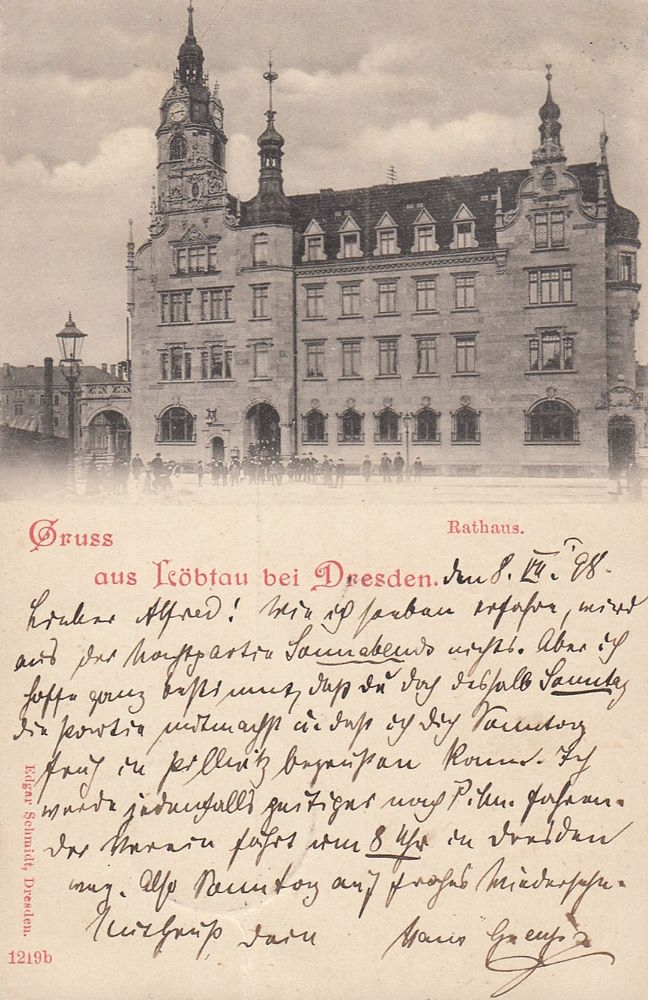 Gruss
Rathaus.
aus Löbtau bei Dresden.
den 8. VII. 98.
Lieber Alfred! Wie ich soeben erfahre, wird
aus der Nachtpartie Sonnabends nichts. Aber ich
hoffe ganz bestimmt, daß du doch deshalb Sonntag
die Partie mitmachst u. daß ich dich Sonntag
früh in Pillnitz begrüßen kann. Ich
werde jedenfalls zeitiger nach Pilln. fahren.
Der Verein fährt um 8 Uhr in Dresden
weg. Also Sonntag auf frohes Wiedersehn.
Mit Gruß dein Hans
Edgar Schmidt, Dresden.
1219b